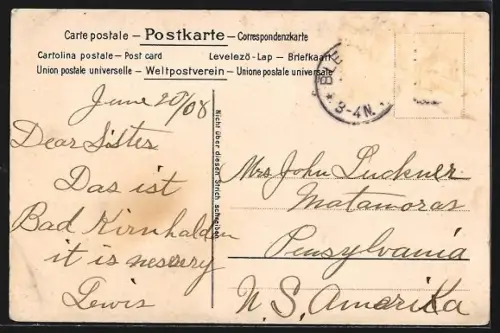 Carte postale – Postkarte – Correspondenzkarte
Cartolina postale – Post card Levelező-Lap – Briefkaart
Union postale universelle – Weltpostverein – Unione postale universale
BLE
* 3-4N.
June 20/08
Dear Sister
Das ist
Bad Kirnhalden
it is
Lewis
Nicht über diesen Strich schreiben
Mrs John Luckner
Matamoras
Pensylvania
N. S. Amerika